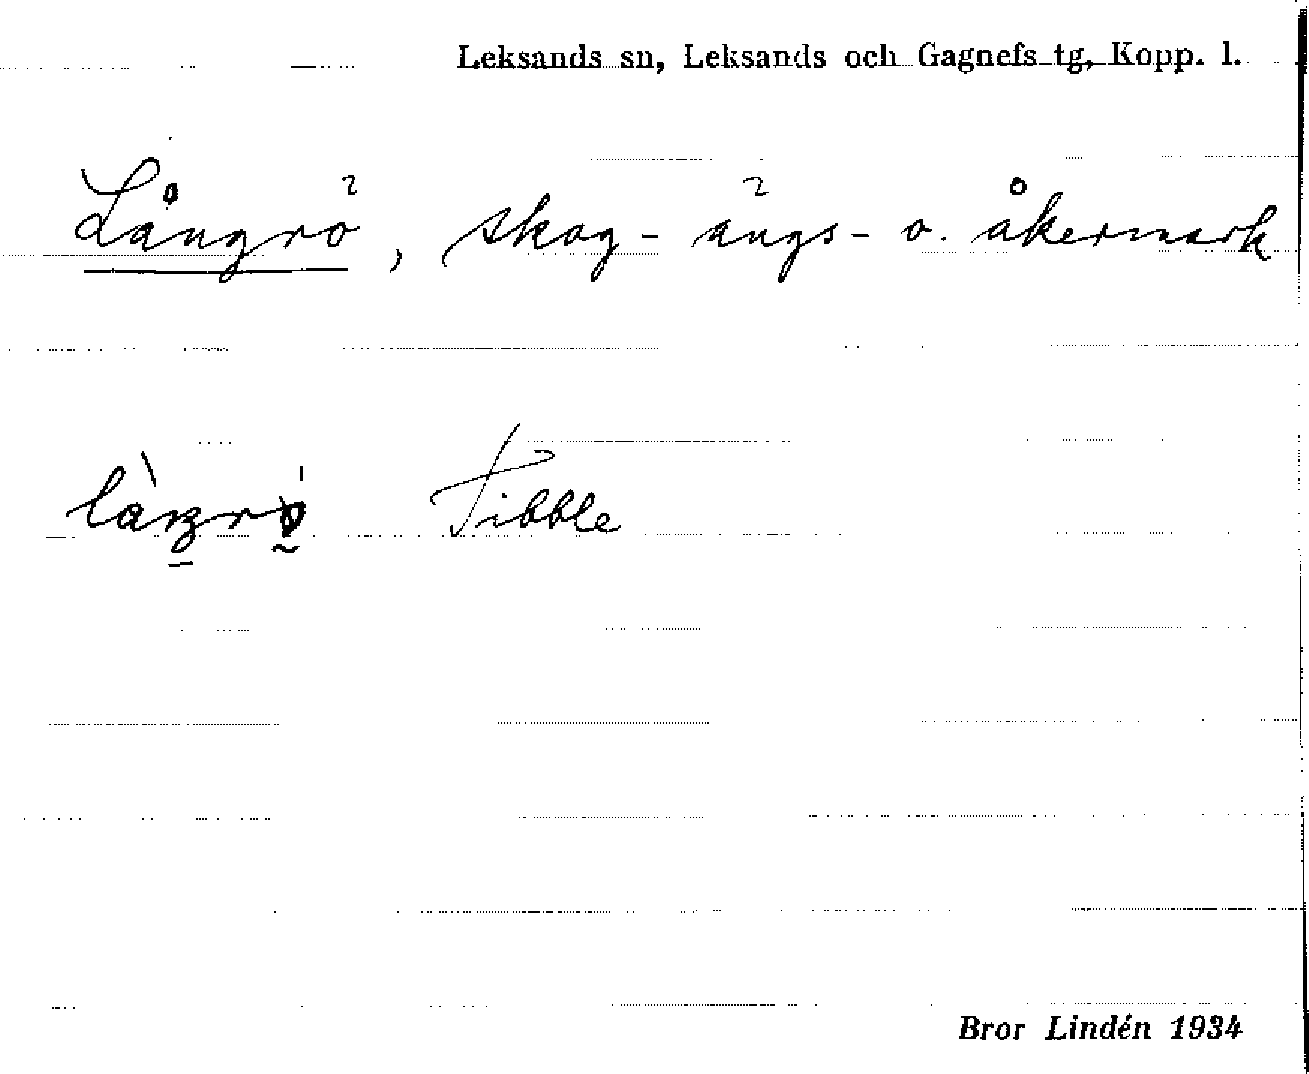 Leksands sn, Leksands och Gagnefs tg, Kopp. l.
Långrö, skog- ängs- o. åkermark
Tibble
Bror Lindén 1934